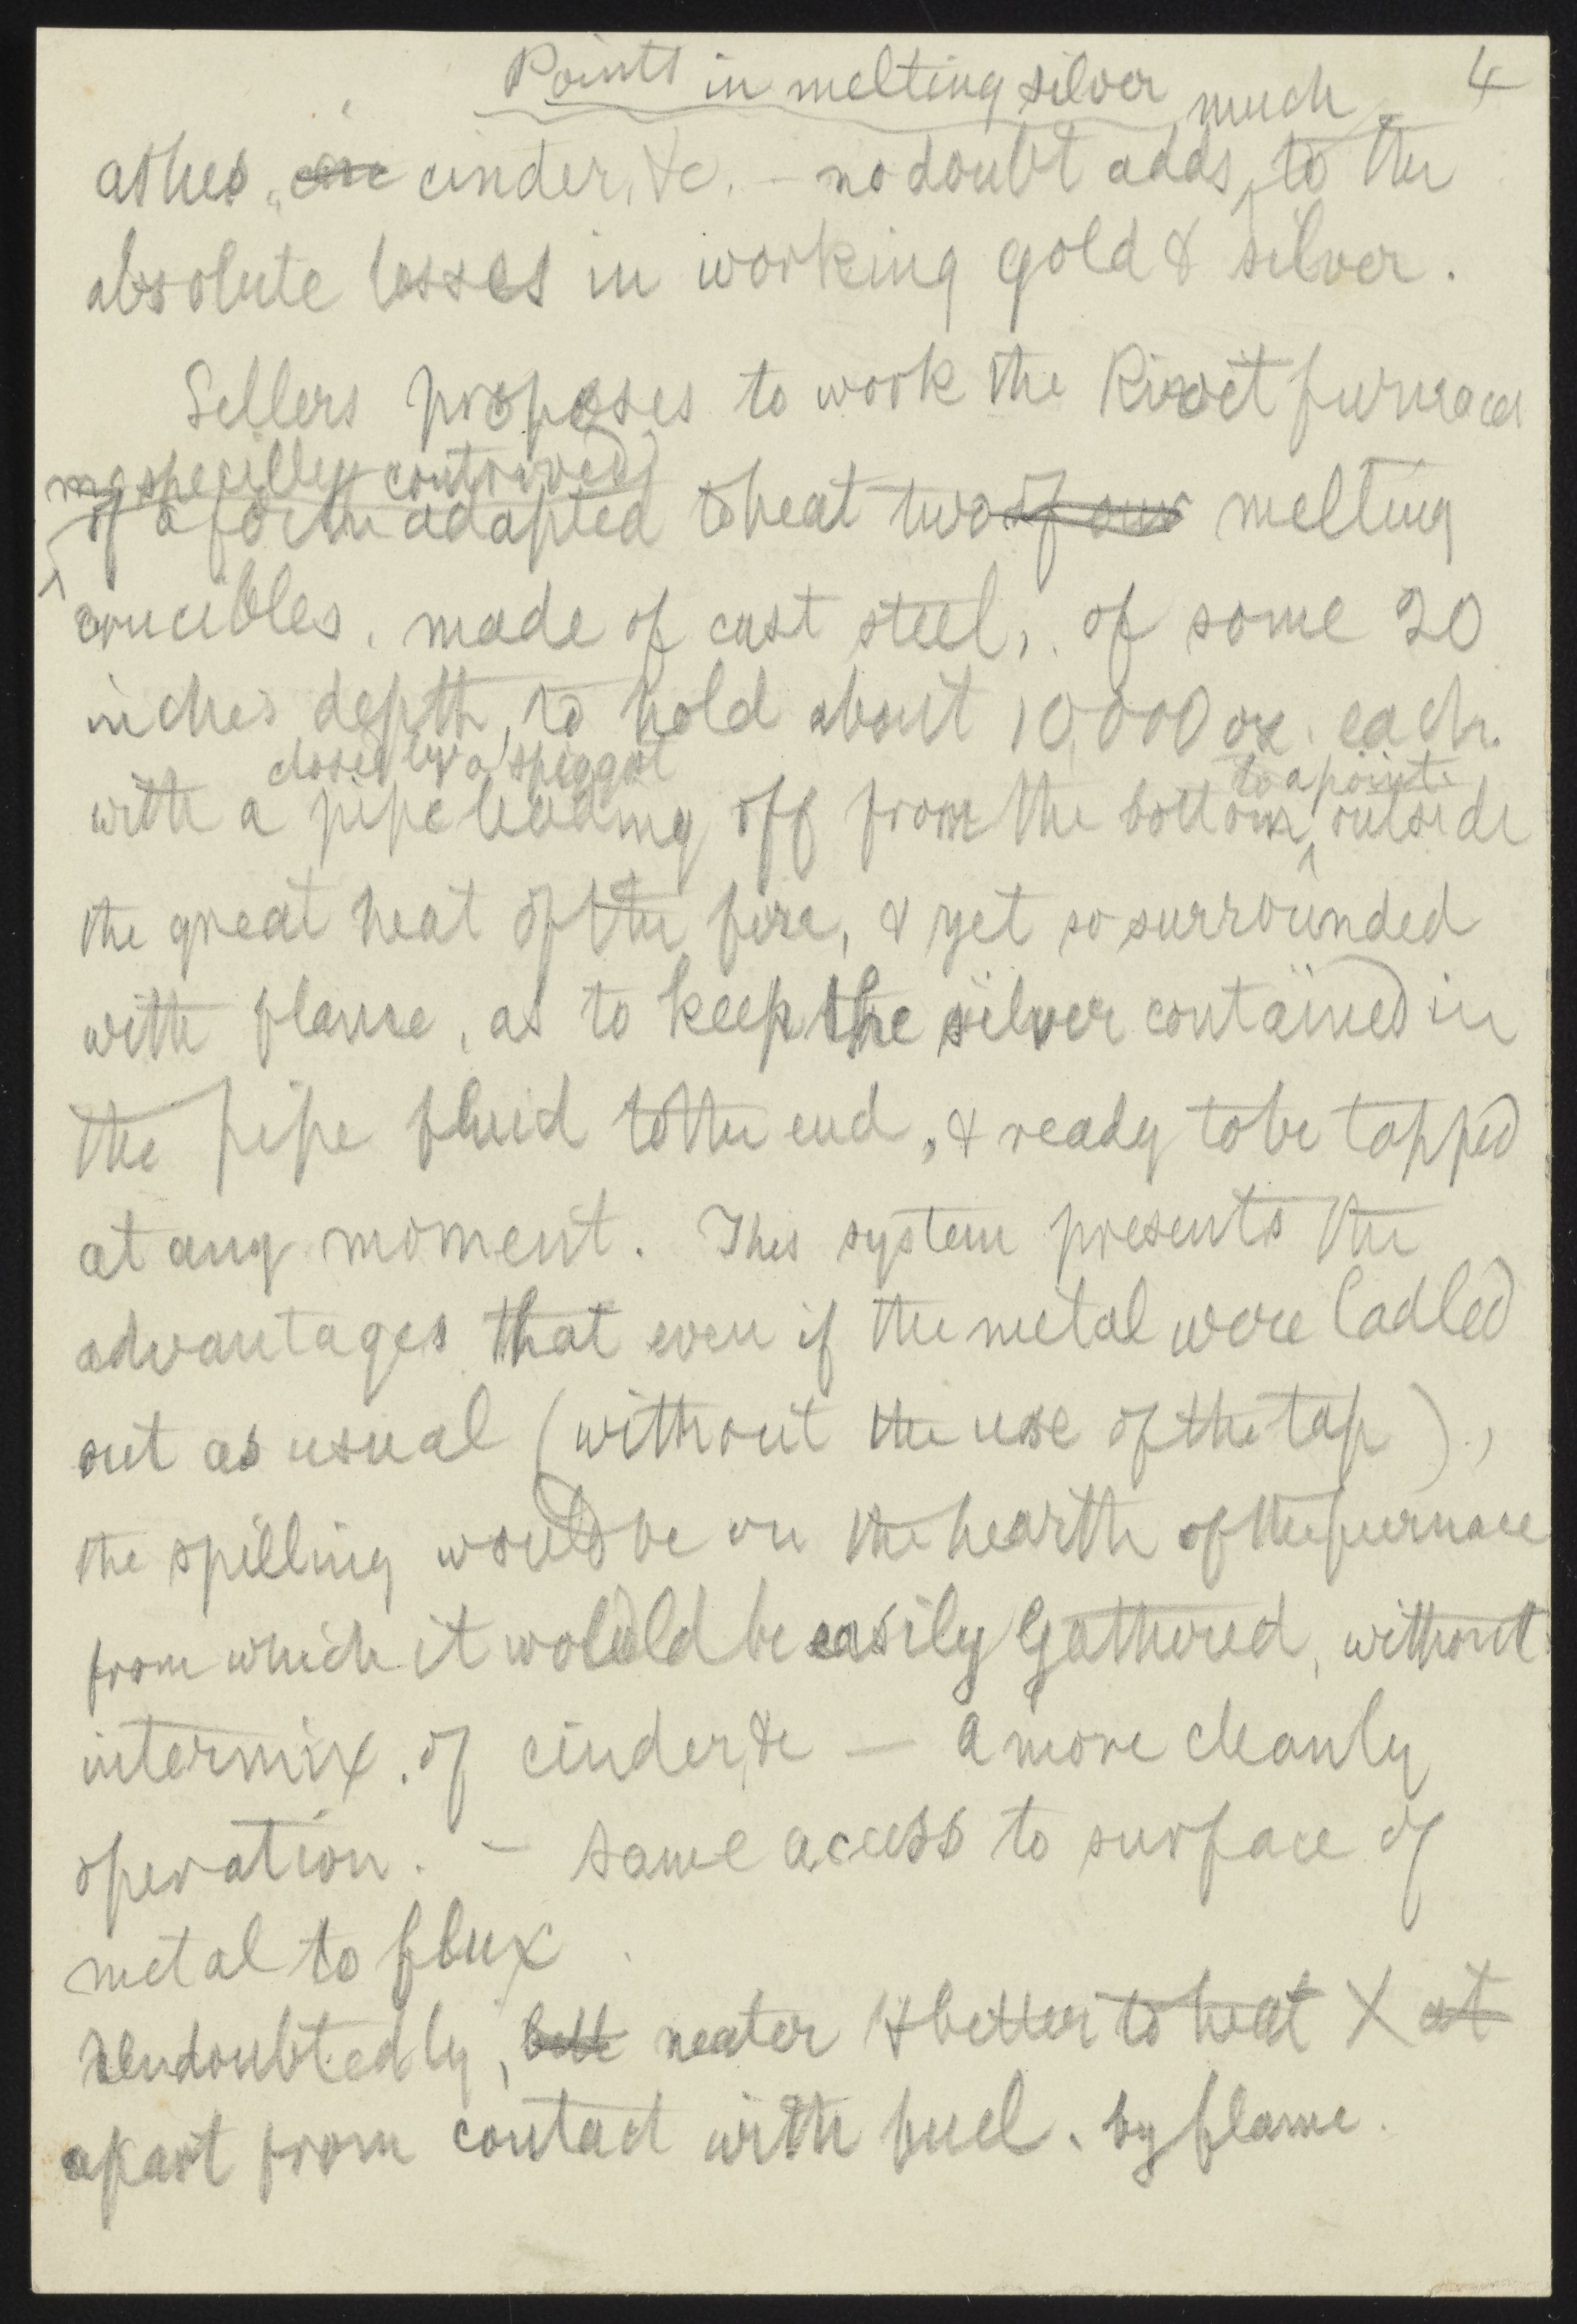 Points in melting silver 4
much
ashes, cinder, &c. - no doubt adds to the
absolute losses in working gold & silver.
Sellers proposes to work the Rivet furnaces
specially contrived
of a form adapted to heat two of our melting
crucibles, made of cast steel, of some 20
inches depth, to hold about 10,000 oz. each.
closed by a spiggot to a point
with a pipe leading off from the bottom, outside
the great heat of the fire, & yet so surrounded
with flame, as to keep the silver contained in
the pipe fluid to the end, & ready to be tapped
at any moment. This system presents the
advantages that even if the metal were ladled
out as usual (without the use of the tap),
the spilling would be on the hearth of the furnace
from which it would be easily gathered, without
intermix. of cinder, &c — a more cleanly
operation. - same access to surface of
metal to flux
Undoubtedly, bett neater & better to heat X at
apart from contact with fuel, by flame.